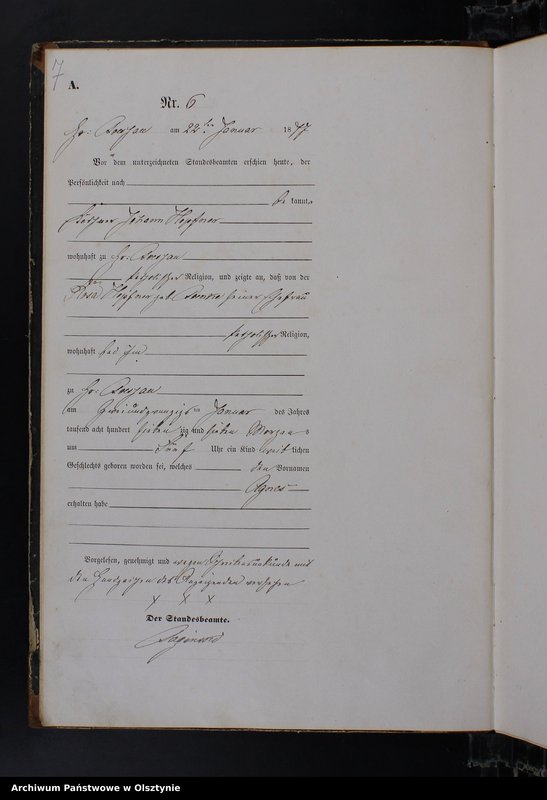 7
A.
Nr. 6
am 22ten Januar 1877
Vor dem unterzeichneten Standesbeamten erschien heute, der
Persönlichkeit nach
be kannt,
Johann Hopfner
wohnhaft zu Gr:
katholischer Religion, und zeigte an, daß von der
Rosa Hopfner geb. seiner Ehefrau
katholischer Religion,
wohnhaft bei ihm
zu Gr:
am zweiundzwanzigsten Januar des Jahres
tausend acht hundert siebenzig und sieben Morgens
um fünf Uhr ein Kind weiblichen
Geschlechts geboren worden sei, welches den Vornamen
Agnes
erhalten habe
Vorgelesen, genehmigt und wegen Schreibensunkunde mit
den Handzeichen des Anzeigenden versehen
x x x
Der Standesbeamte.
Archiwum Państwowe w Olsztynie